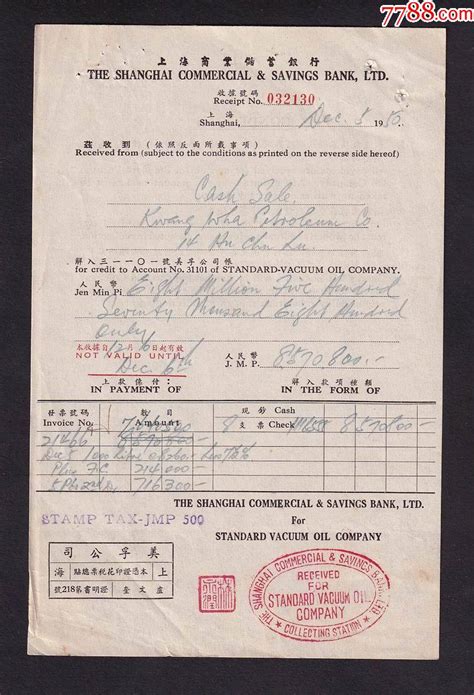 7788.com
上海商業儲蓄銀行
THE SHANGHAI COMMERCIAL & SAVINGS BANK, LTD.
收據號碼
Receipt No. 032130
上海
Shanghai, Dec. 5 1950.
茲收到 (依照反面所載事項)
Received from (subject to the conditions as printed on the reverse side hereof)
Cash Sale
Kwang Wha Petroleum Co
14 Hu Chu Lu.
解入三一一〇一號美孚公司帳
for credit to Account No. 31101 of STANDARD-VACUUM OIL COMPANY.
人民幣
Jen Min Pi Eight Million Five Hundred
Seventy Thousand Eight Hundred
only
本收據自12/6日起有效
NOT VALID UNTIL
Dec 6th
人民幣
J. M. P. 8570800.-
上款係付: 解入款項種類
IN PAYMENT OF IN THE FORM OF
發票號碼 數目 現鈔 Cash
Invoice No. Amount 支票 Check 8570800-
21466
Dec 5 1000
214000-
716300-
THE SHANGHAI COMMERCIAL & SAVINGS BANK, LTD.
For
STANDARD VACUUM OIL COMPANY
STAMP TAX-JMP 500
美孚公司
上海
本憑證印花稅票總貼
盧文奎
證明書第218號
THE SHANGHAI COMMERCIAL & SAVINGS BANK LTD
RECEIVED
FOR
STANDARD VACUUM OIL
COMPANY
COLLECTING STATION